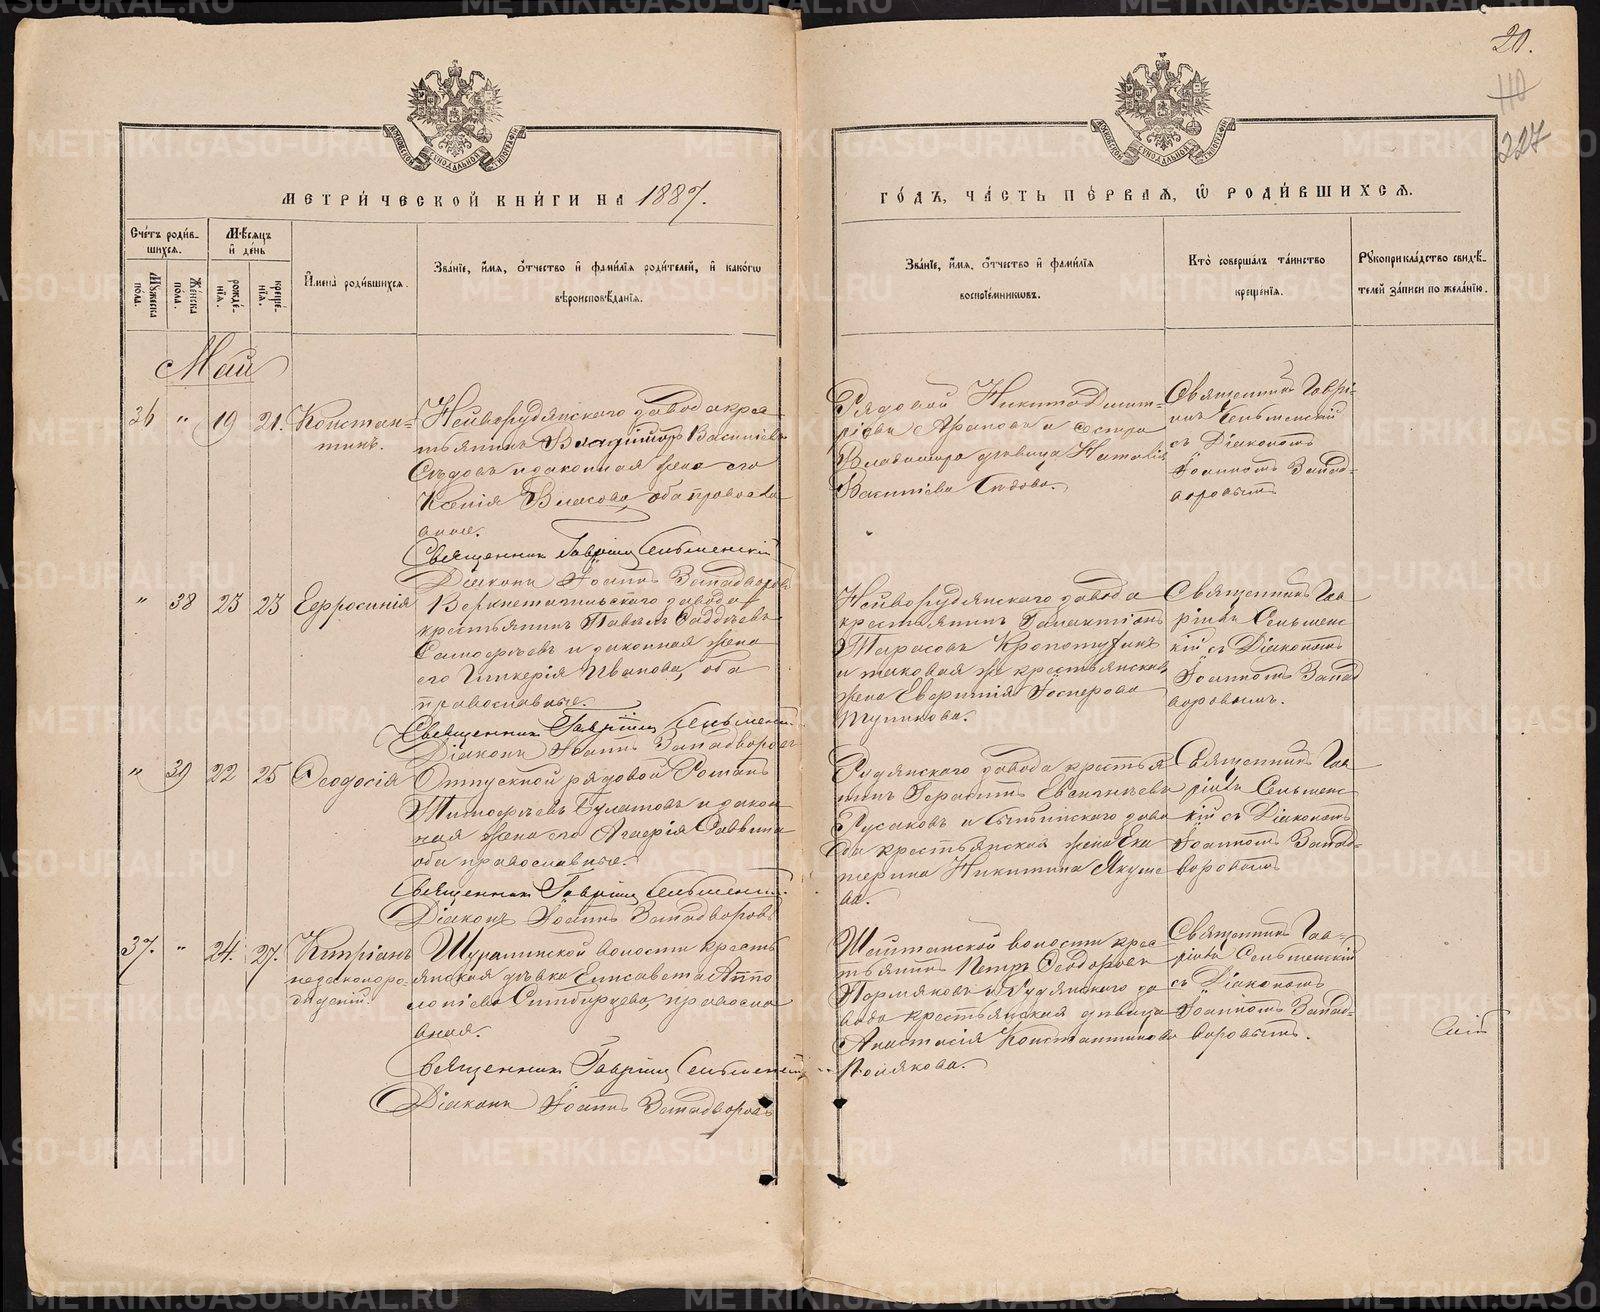 20.
110
227
МЕТРИ́ЧЕСКОЙ КНИ́ГИ НА 1887.
ГО́ДЪ, ЧА́СТЬ ПЕ́РВАѦ, Ѡ҆ РОДИ́ВШИХСѦ.
Сче́тъ роди́в-
шихсѧ.
Мꙋ́жеска по́ла.
Же́нска по́ла.
Мѣ́сѧцъ
и҆ де́нь
рожде́-
нїѧ.
креще́-
нїѧ.
И҆мена̀ роди́вшихсѧ.
Зва́нїе, и҆́мѧ, ѻ҆́тчество и҆ фами́лїѧ роди́телей, и҆ како́гѡ
вѣроисповѣ́данїѧ.
Зва́нїе, и҆́мѧ, ѻ҆́тчество и҆ фами́лїѧ
воспрїе́мникѡвъ.
Кто̀ соверша́лъ та́инство
креще́нїѧ.
Рꙋкоприкла́дство свидѣ́-
телей за́писи по жела́нїю.
Май
36 " 19 21. Констан-
тинъ.
Нейворудянскаго завода крес
тьянинъ Владиміръ Василіевъ
Сѣдовъ и законная жена его
Ксенія Власова, оба правосла
вные.
Священникъ Гавріилъ Сельменскій
Діаконъ Іоаннъ Западворовъ
Рядовой Никита Димит-
ріевъ Араповъ и сестра
Владимира девица Наталія
Василіева Сѣдова.
Священникъ Гаврі-
илъ Сельменскій
съ Діакономъ
Іоанномъ Запад-
воровымъ
" 38 23 23 Евфросинія
Верхнетагильскаго завода
крестьянинъ Павелъ Фаддѣевъ
и законная жена
его Гликерія Иванова, оба
православные.
Священникъ Гавріилъ Сельменск.
Діаконъ Іоаннъ Западворовъ
Нейворудянскаго завода
крестьянинъ Галактіонъ
Тарасовъ Кропотухинъ
и таковая же крестьянская
жена Евфимія
Тупикова.
Священникъ Гав
ріилъ Сельменс
кій съ Діакономъ
Іоанномъ Запад
воровымъ.
" 39 22 25 Ѳеодосія
Отпускной рядовой Романъ
Тимофѣевъ Булатовъ и закон
ная жена его Агаѳія Саввина
оба православные.
Священникъ Гавріилъ Сельменск.
Діаконъ Іоаннъ Западворовъ
Рудянскаго завода крестья
нинъ Герасимъ
Русаковъ и заво
да крестьянская жена Ека
терина Никитина Якуше
ва.
Священникъ Гав
ріилъ Сельменс
кій съ Діакономъ
Іоанномъ Запад-
воровымъ
37. " 24. 27. Кипріанъ
незаконоро
жденій.
Шуралинской волости кресть
янская дѣвка Елисавета Аппо
лонієва православ
вная.
Священникъ Гавріилъ Сельменскій
Діаконъ Іоаннъ Западворовъ
Шайтанской волости крес
тьянинъ Петръ Ѳеодоровъ
Пермяковъ и Рудянскаго за
вода крестьянская дѣвица
Анастасія Константинова
Полякова.
Священникъ Гав-
ріилъ Сельменскій
съ Діакономъ
Іоанномъ Запад-
воровымъ.
METRIKI.GASO-URAL.RU